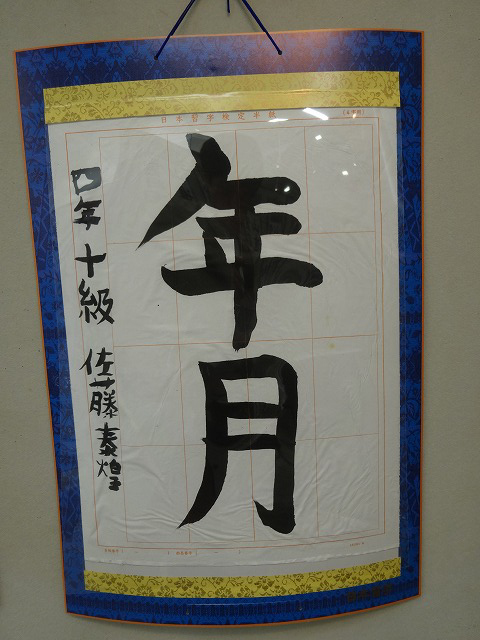 日本習字検定半紙
年月
四年 十級 佐藤泰煌